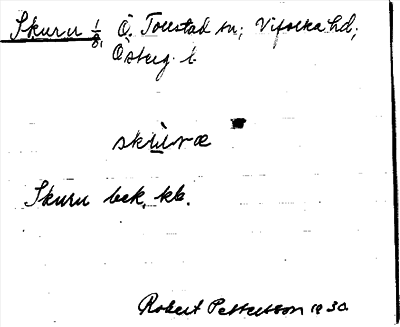 Skuru 1/8, Ö. Tollstad sn; Vifolka hd;
Österg. l.
skùræ
Skuru bek. kb.
Robert Pettersson 1930.